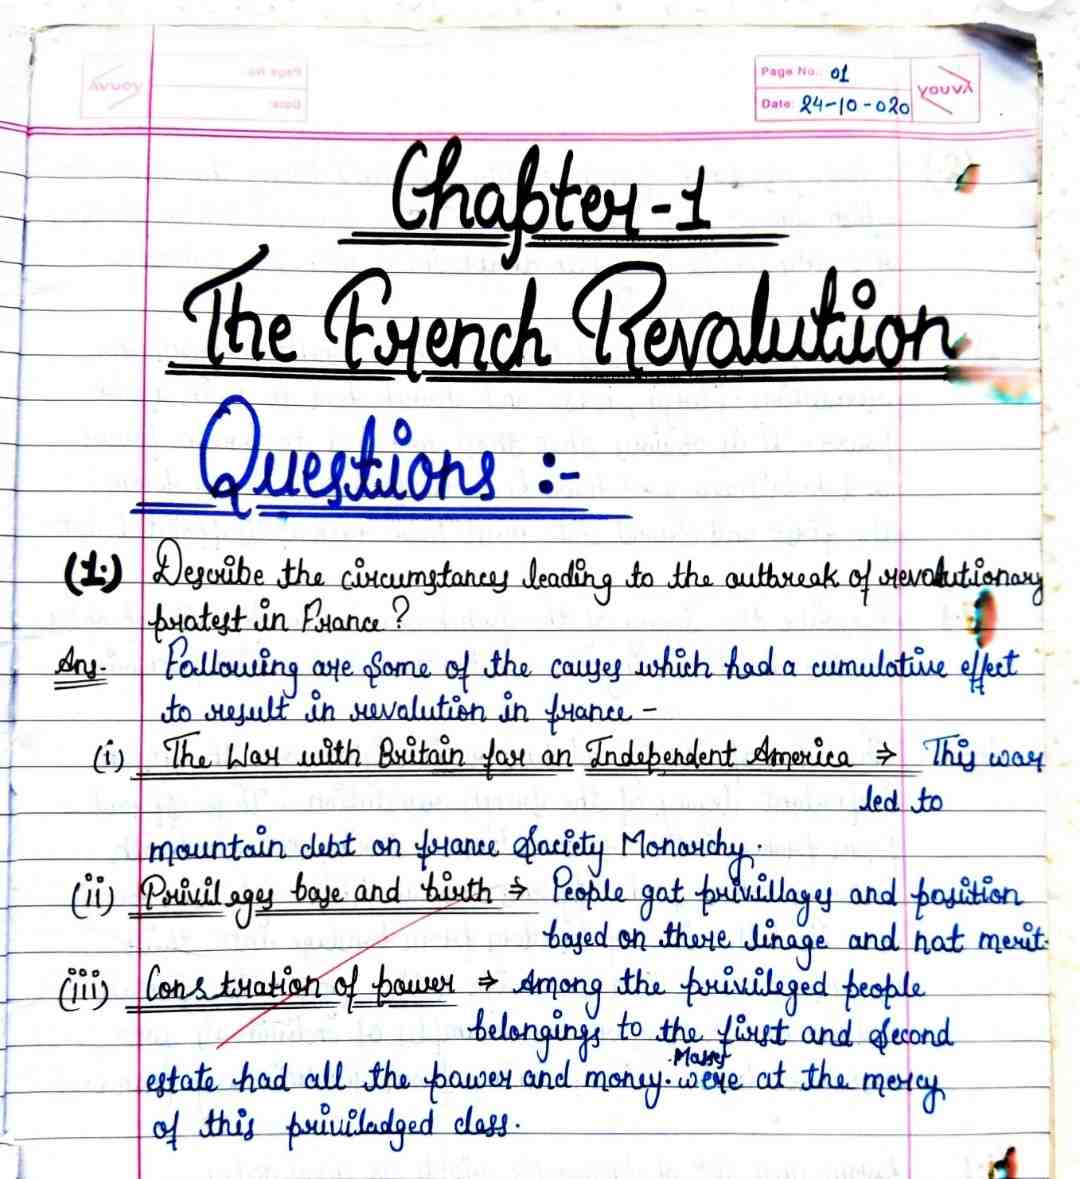 Page No. 01
Date: 24-10-020
YOUVA
Chapter-1
The French Revolution
Questions :-
(1.) Describe the circumstances leading to the outbreak of revolutionary
protest in France?
Ans- Following are some of the causes which had a cumulative effect
to result in revolution in france -
(i) The War with Britain for an Independent America → This war
led to
mountain debt on france Society Monarchy.
(ii) Privileges base and birth ⇒ People got privillages and position
based on there linage and not merit.
(iii) Constration of power ⇒ Among the privileged people
belongings to the first and second
Masses
estate had all the power and money. were at the mercy
of this priviladged class.